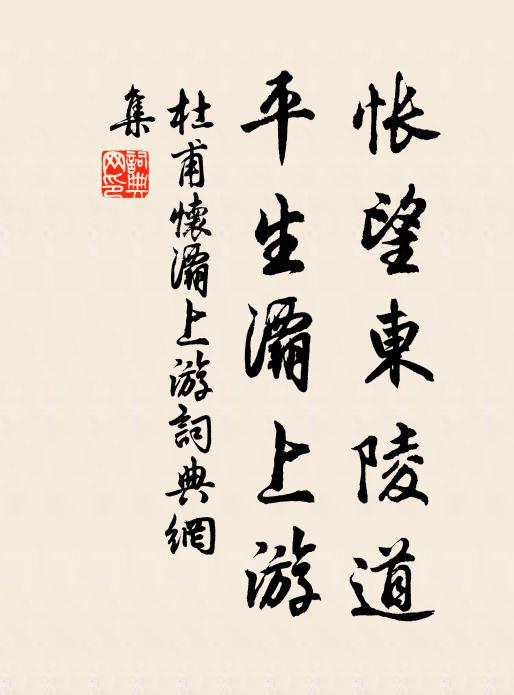 悵望東陵道
平生灞上游
杜甫懷灞上游詞典網
集
詞典
网印